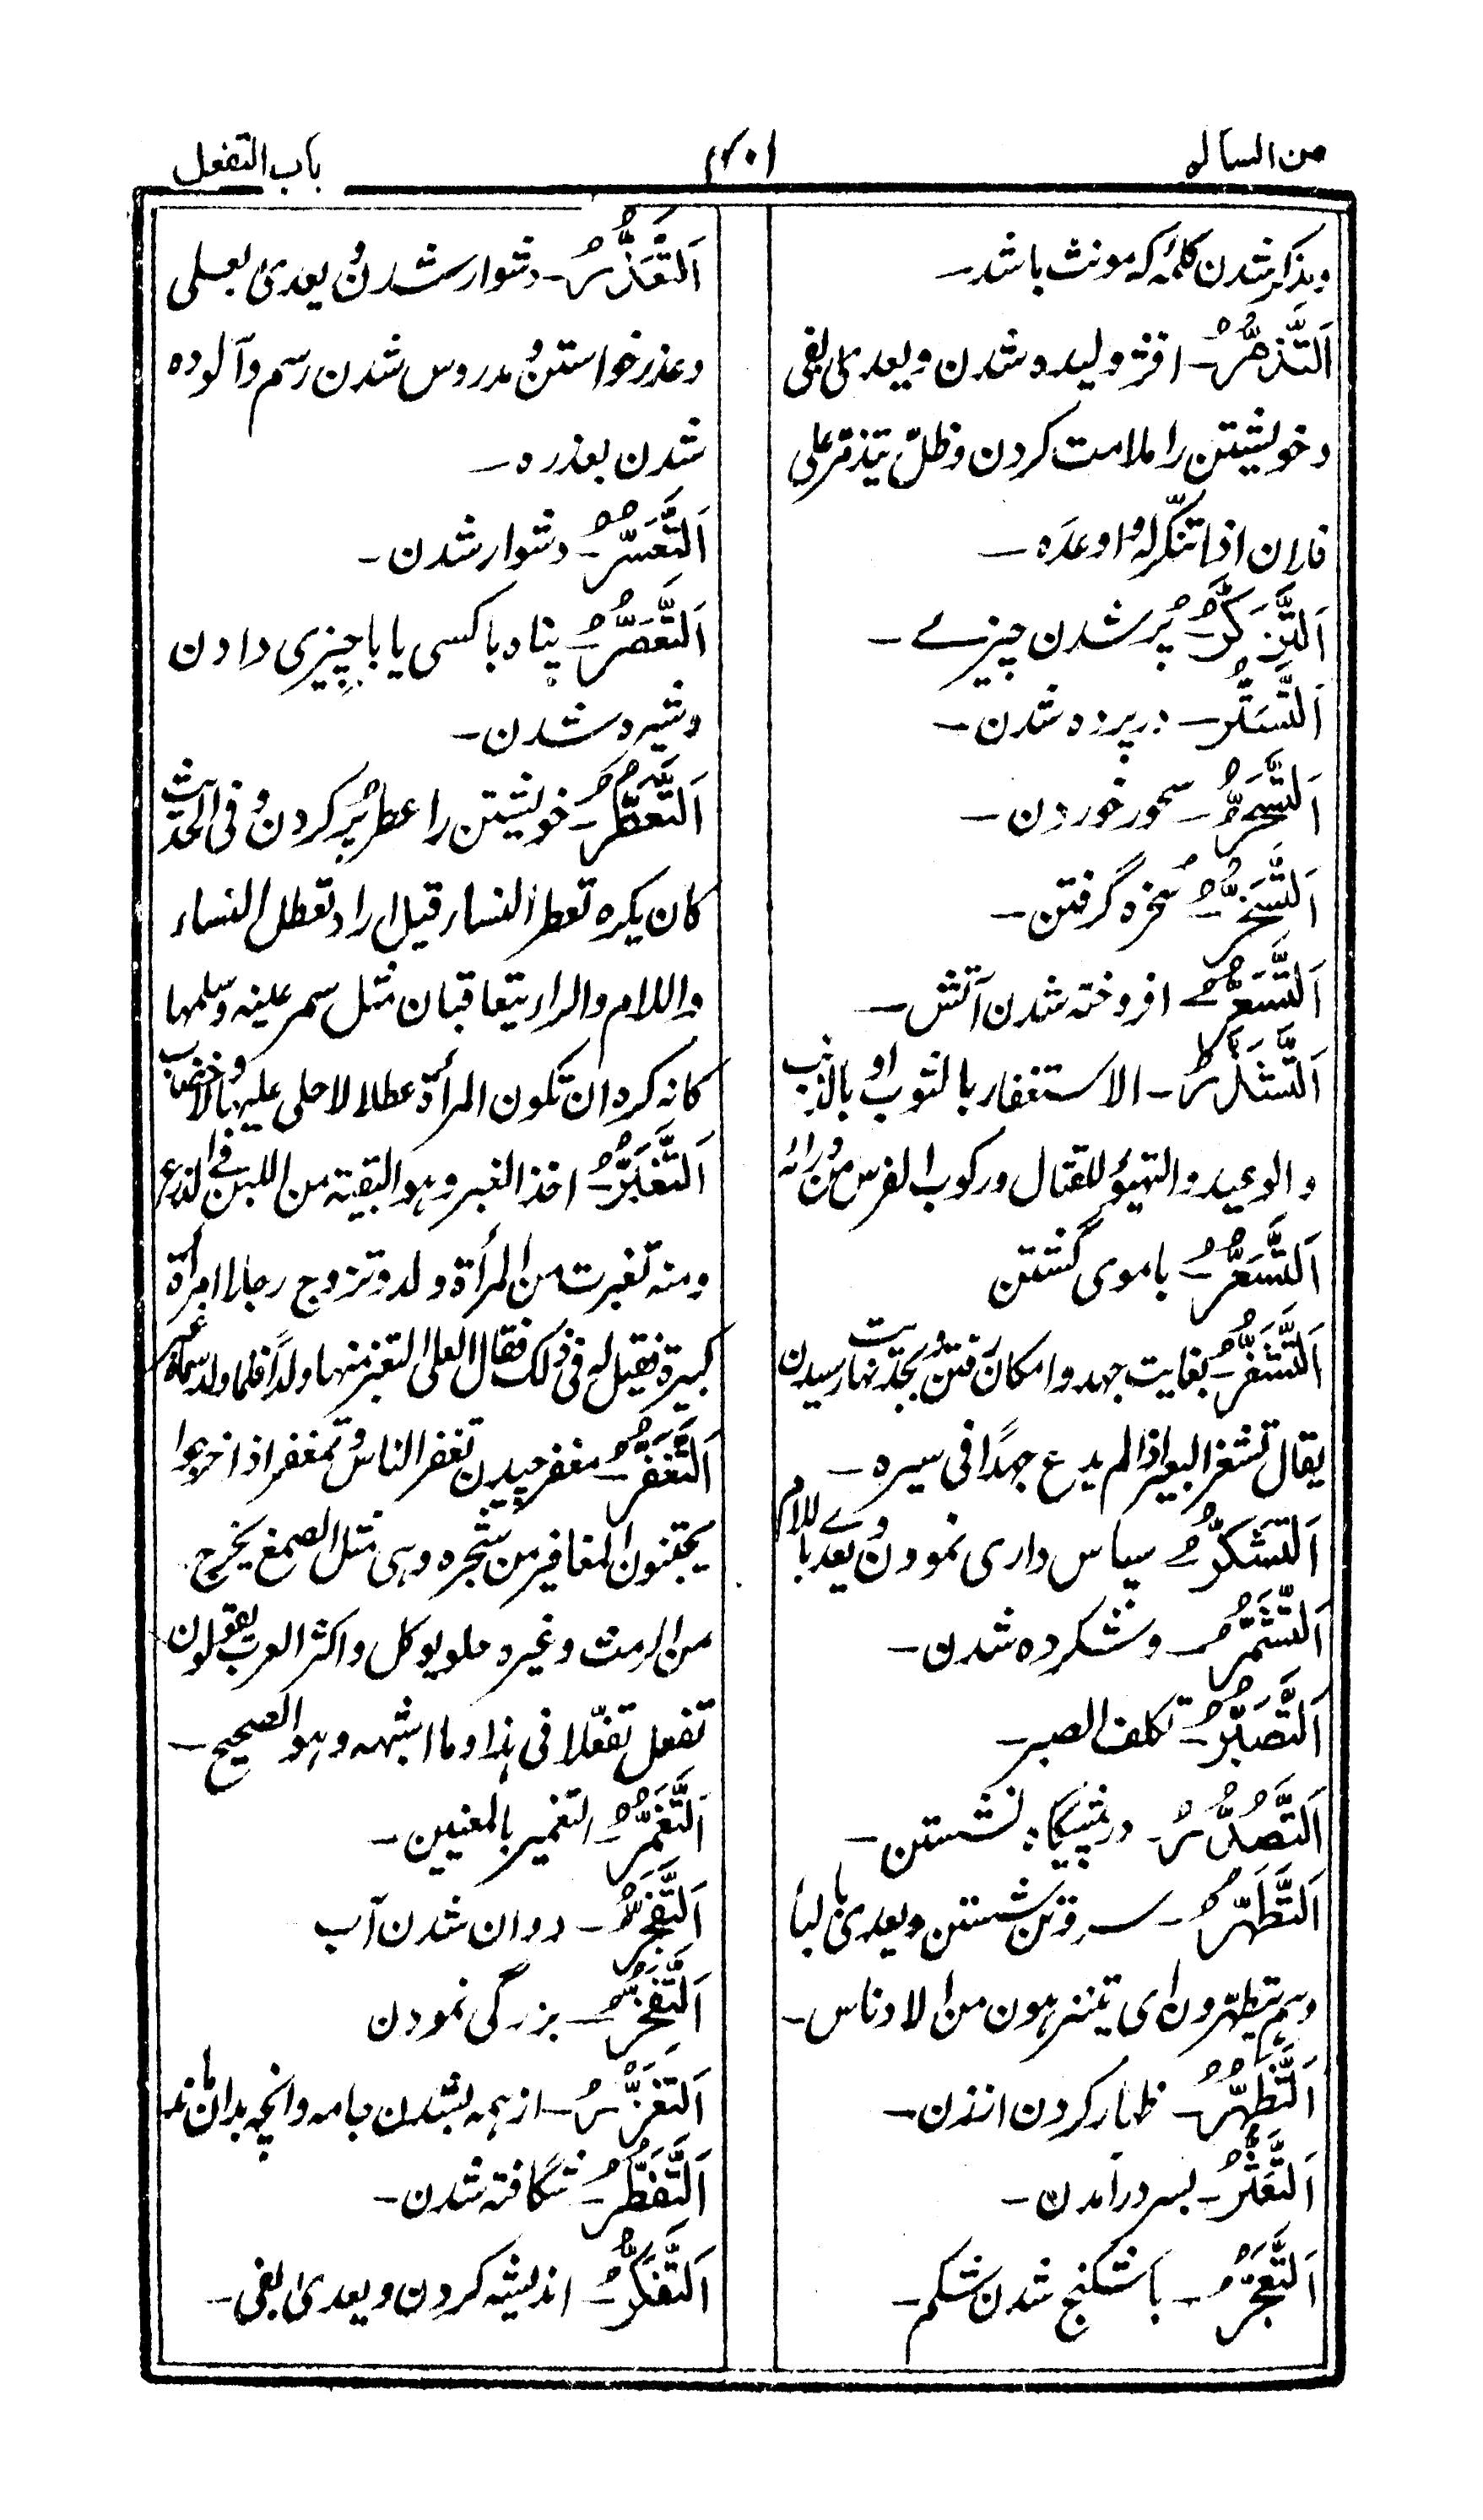 من السالم
۴۰۱
باب التفعل
ومذکر شدن کلمهٔ که مونث باشد ـ
اَلتَّذَمُّرُ ـ افژولیده شدن ویعدی بفی
وخویشتن را ملامت کردن وظلّ یتذمّر علی
فلان اذا تنکّر له واوعده ـ
اَلتَّزَكُّرُ ـ پُر شدن چیزے ـ
اَلتَّسَتُّرُ ـ در پرده شدن ـ
اَلتَّسَحُّرُ ـ سحور خوردن ـ
اَلتَّسَخُّرُ ـ سُخره گرفتن ـ
اَلتَّسَعُّرُ ـ افروخته شدن آتش ـ
اَلتَّشَذُّرُ ـ الاستثفار بالثوب او بالذنب
والوعید والتهیؤ للقتال ورکوب الفرس من ورائه
اَلتَّشَعُّرُ ـ باموی گشتن
اَلتَّشَغُّرُ ـ بغایت جهد وامکان رفتن بحد نهایت رسیدن
یقال تشغر البعیر اذا لم یدع جهدًا فی سیره ـ
اَلتَّشَكُّرُ ـ سپاس داری نمودن ویعدے باللام
اَلتَّشَمُّرُ ـ وشکرده شدن ـ
اَلتَّصَبُّرُ ـ تکلف الصبر ـ
اَلتَّصَدُّرُ ـ در پیشگاه نشستن ـ
اَلتَّطَهُّرُ ـ سروتن شستن ویعدی بالبا
وهم یتطهّرون ای یتنزهون من الادناس ـ
اَلتَّظَهُّرُ ـ ظهار کردن از زن ـ
اَلتَّعَثُّرُ ـ بسر درآمدن ـ
اَلتَّعَجُّرُ ـ باشکنج شدن شکم ـ
اَلتَّعَذُّرُ ـ دشوار شدن ویعدی بعلی
وعذر خواستن ومدروس شدن رسم وآلوده
شدن بعذره ـ
اَلتَّعَسُّرُ ـ دشوار شدن ـ
اَلتَّعَصُّرُ ـ پناه باکسی یا باچیزی دادن
وشیره شدن ـ
اَلتَّعَطُّرُ ـ خویشتن را عطر پُر کردن وفی الحدیث
کان یکره تعطر النساء قیل اراد تعطل النساء
واللام والراء یتعاقبان مثل سمر عینه وسملها
کانه کره ان تکون المرأة عطلا لا حلی علیها ولاخضاب
اَلتَّغَبُّرُ ـ اخذ الغبر وهو البقیة من اللبن فی الضرع
ومنه تغبرت من المرأة ولد وتزوج رجلا امرأة
کبیرة فقیل له فی ذلک فقال لعلی اتغبر منها ولدًا فلما ولد سماه غُبر
اَلتَّغَفُّرُ ـ مغفر چیدن تغفر الناس وتمغفر اذا خرجوا
یجتنون المغافیر من شجره وهی مثل الصمغ یخرج
من الرمث وغیره حلو یوکل واکثر العرب یقولون
تفعل تفعّلا فی هذا وما اشبهه وهو الصحیح ـ
اَلتَّغَمُّرُ ـ التغمیر بالمعنیین ـ
اَلتَّفَجُّرُ ـ روان شدن آب
اَلتَّفَخُّرُ ـ بزرگی نمودن
اَلتَّفَزُّرُ ـ از همه بشدن جامه وآنچه بدان ماند
اَلتَّفَطُّرُ ـ شگافته شدن ـ
اَلتَّفَكُّرُ ـ اندیشه کردن ویعدی بفی ـ